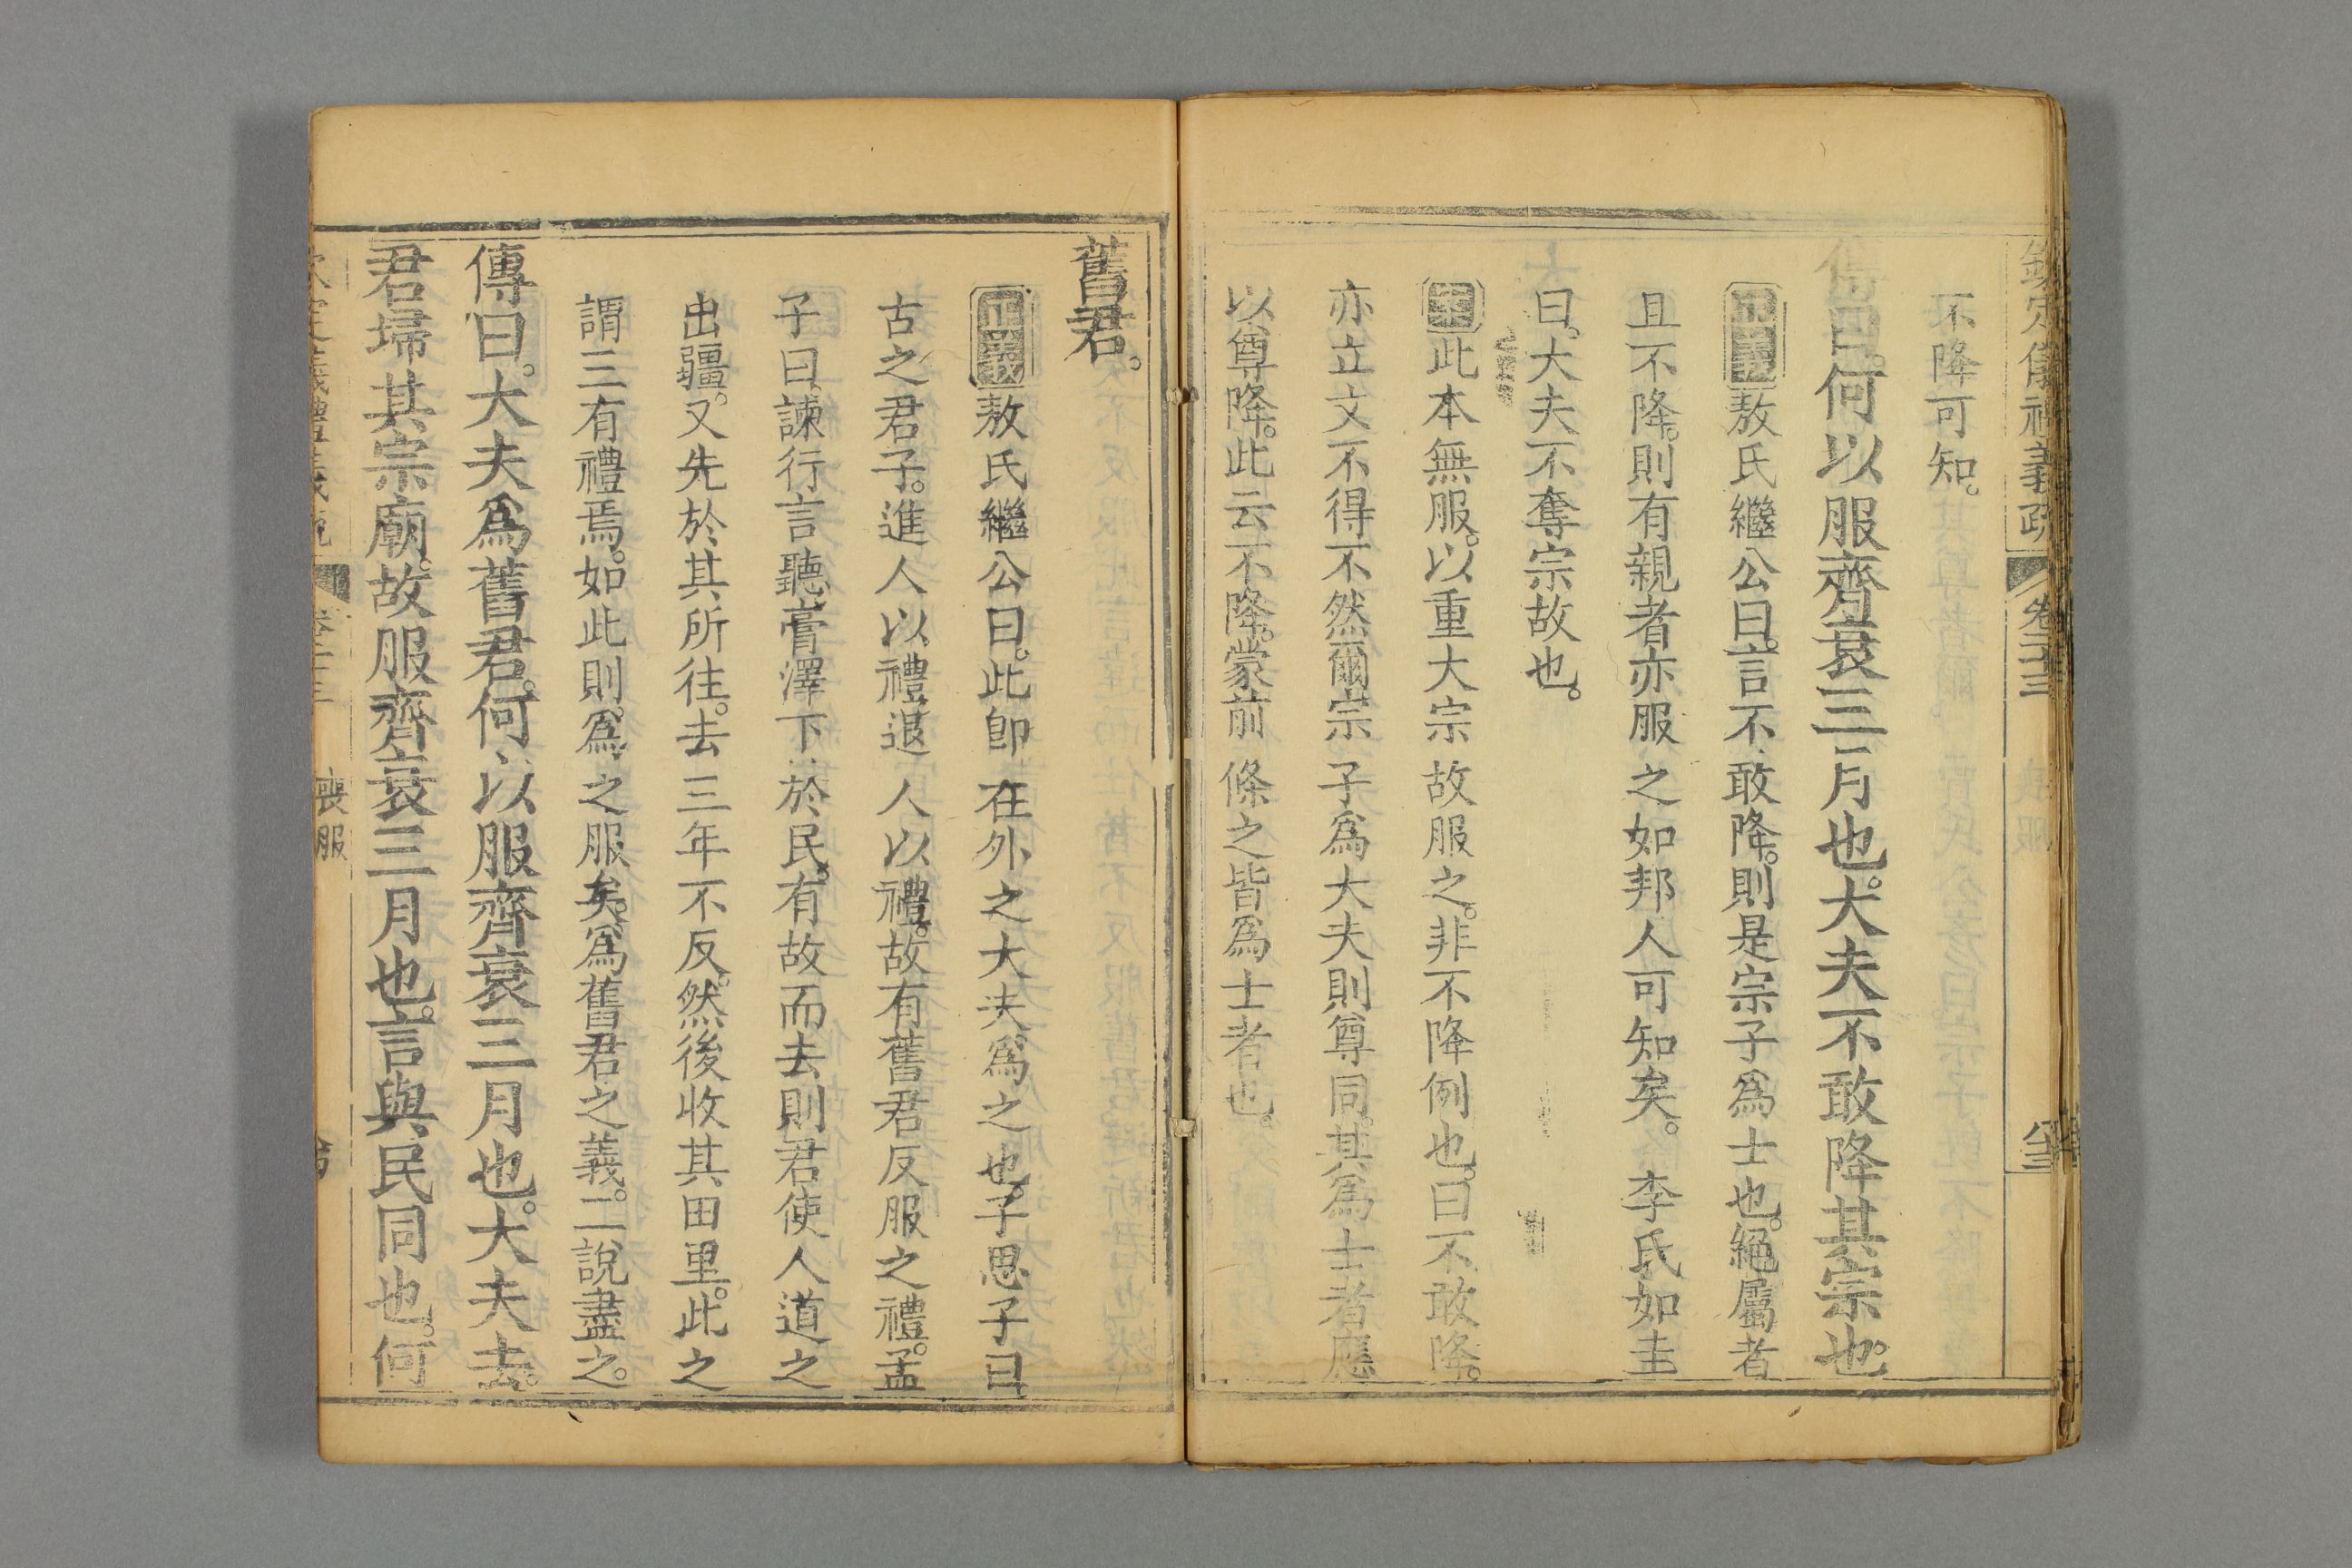 欽定儀禮義疏 卷二十三 六十三
不降可知。
傳曰。何以服齊衰三月也。大夫不敢降其宗也。
正義敖氏繼公曰。言不敢降。則是宗子爲士也。絕屬者
且不降。則有親者亦服之如邦人可知矣。 李氏如圭
曰。大夫不奪宗故也。
案此本無服。以重大宗故服之。非不降例也。曰不敢降。
亦立文不得不然爾。宗子爲大夫則尊同。其爲士者應
以尊降。此云不降。蒙前條之皆爲士者也。
舊君。
正義敖氏繼公曰。此卽在外之大夫爲之也。子思子曰
古之君子。進人以禮。退人以禮。故有舊君反服之禮。孟
子曰。諫行言聽。膏澤下於民。有故而去。則君使人道之
出疆。又先於其所往。去三年不反。然後收其田里。此之
謂三有禮焉。如此則爲之服矣。爲舊君之義。二說盡之。
傳曰。大夫爲舊君。何以服齊衰三月也。大夫去。
君埽其宗廟。故服齊衰三月也。言與民同也。何
喪服